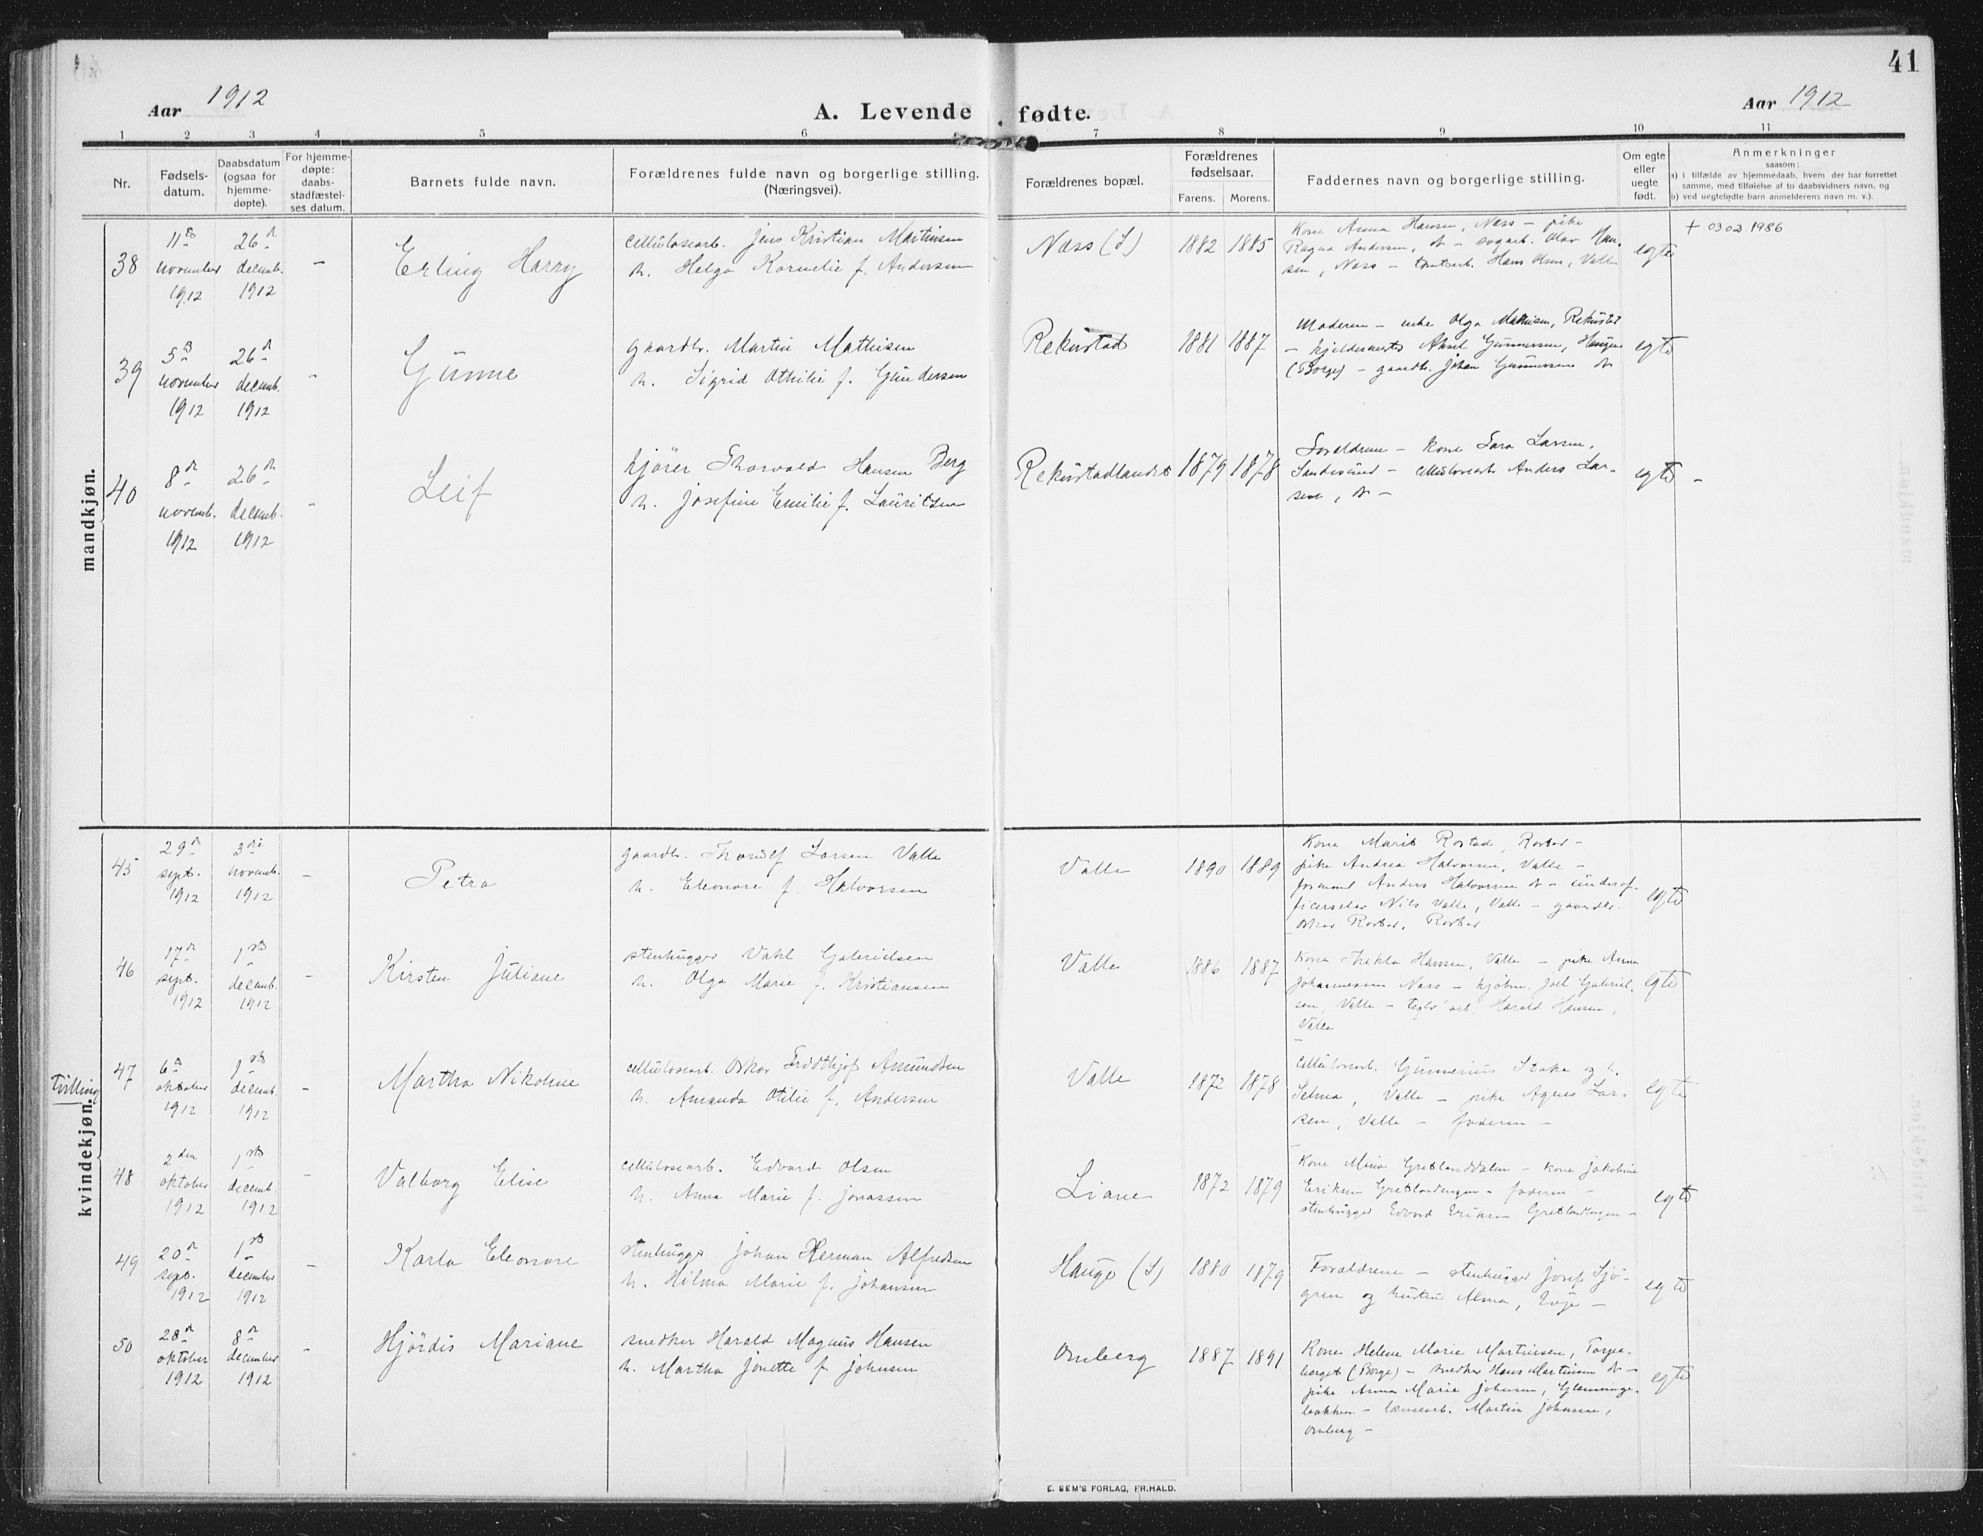 41
Aar 1912
A. Levende fødte.
Aar 1912
1 2 3 4 5 6 7 8 9 10 11
Nr.
Fødsels-
datum.
Daabsdatum
(ogsaa for
hjemme-
døpte).
For hjemme-
døpte:
daabs-
stadfæstel-
ses datum.
Barnets fulde navn.
Forældrenes fulde navn og borgerlige stilling.
(Næringsvei).
Forældrenes bopæl.
Forældrenes
fødselsaar.
Farens. Morens.
Faddernes navn og borgerlige stilling.
Om egte
eller
uegte
født.
Anmerkninger
saasom:
a) i tilfælde av hjemmedaab, hvem der har forrettet
samme, med tilføielse af to daabsvidners navn, og
b) ved uegtefødte barn anmelderens navn m. v.).
mandkjøn.
38
11te
november
1912
26de
decemb.
1912
-
Erling Harry
cellulosearb. Jens Kristian Martinsen
h. Helga Kornelie f. Andersen
Næss (S)
1882 1885
Kone Anna Hansen, Næss - pike
Ragna Andersen, do - sagarb. Olav Han-
sen, Næss - tomtearb. Hans Olsen, Valle
egte
+ 03 02 1986
39
5te
november
1912
26de
decemb.
1912
-
Gunne
gaardbr. Martin Mathisen
h. Sigrid Othilie f. Gundersen
Rekustad
1881 1887
Moderen - enke Olga Mathisen, Rekustad
- Aksel Gunnersen, Haugen
(Borge) - gaardb. Johan Gunnersen do
egte
40
8de
novemb.
1912
26de
decemb.
1912
-
Leif
kjører Thorvald Hansen Berg
h. Josefine Emilie f. Lauritsen
Rekustadlandet
1879 1878
Foreldrene - kone Sara Larsen,
- cellulosearb Anders Lar-
sen, do -
egte -
kvindekjøn.
45
29de
sept.
1912
3die
novemb.
1912
-
Petra
gaardbr. Thorolf Larsen Valle
h. Eleonore f. Halvorsen
Valle
1890 1889
Kone Marie Rostad, Rorbær -
pike Andrea Halvorsen, Valle -
formand Anders Halvorsen do - underof-
ficerselev Nils Valle, Valle - gaardbr.
Oskar Rorbær, Rorbær
egte
46
17de
sept.
1912
1ste
decemb.
1912
-
Kirsten Juliane
stenhugger Vahl Gabrielsen
h. Olga Marie f. Kristiansen
Valle
1886 1887
Kone Thekla Hansen, Valle - pike Anna
Johannessen Næss - kjøbm. Joel Gabriel-
sen, Valle - teglv arb. Harald Hansen,
Valle
egte
tvilling
47
6te
oktober
1912
1ste
decemb.
1912
-
Martha Nikoline
cellulosearb. Oskar Fridthjof Amundsen
h. Amanda Otilie f. Andersen
Valle
1872 1878
cellulosearb. Gunnerius Stake og h.
Selma, Valle - pike Agnes Lar-
sen, Valle - faderen -
egte
48
2den
oktober
1912
1ste
decemb.
1912
-
Valborg Elise
cellulosearb. Edvard Olsen
h. Anna Marie f. Jonassen
Liane
1872 1879
Kone Mina Gretlanddalen - kone Jakobine
Eriksen Gretlandengen - faderen -
stenhugger Edvard Eriksen Gretlandengen -
egte
49
20de
sept.
1912
1ste
december
1912
-
Karla Eleonore
stenhugger Johan Herman Alfredsen
h. Hilma Marie f. Johansen
Hauge (S)
1880 1879
Forældrene - stenhugger Josef Sjö-
gren og hustru Alma, -
egte
50
28de
oktober
1912
8de
december
1912
-
Hjördis Mariane
snedker Harald Magnus Hansen
h. Martha Jonette f. Johnsen
Omberg
1887 1891
Kone Helene Marie Martinsen, Torpe-
berget (Borge) - snedker Hans Martinsen do -
pike Anna Marie Johnsen, Glemminge-
bakken - lænsearb. Martin Johnsen,
Omberg -
egte
E. SEM'S FORLAG, FR.HALD.